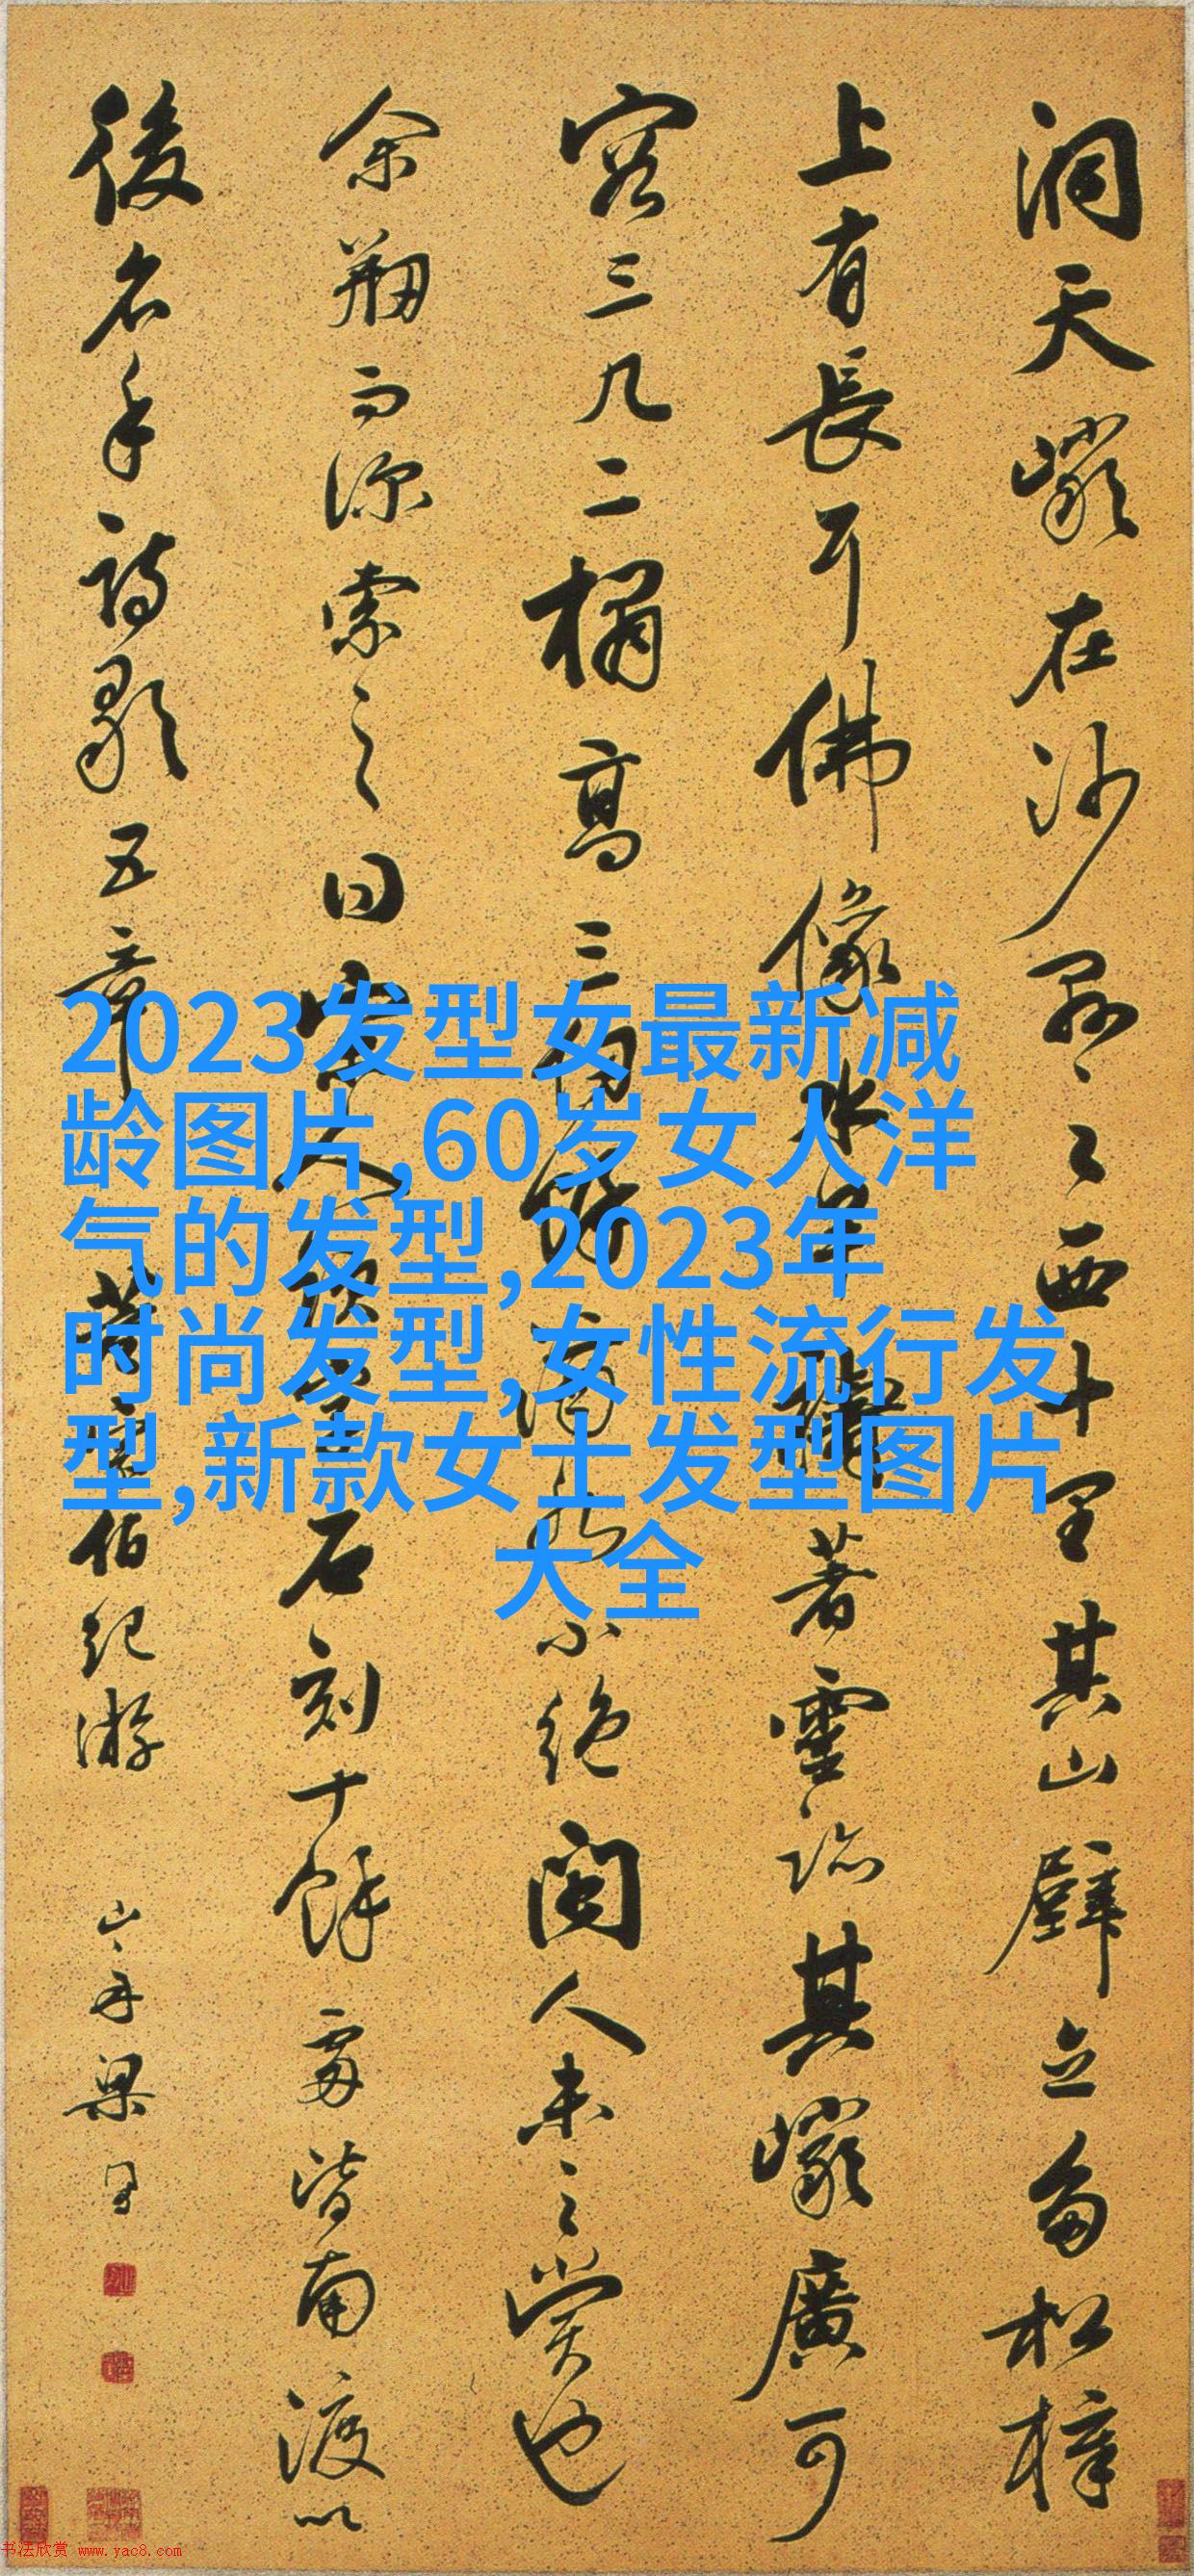 洞天巖在沙縣之西十里其山壁立多松樟
上有長耳佛像水旱禱著靈跡其巖廣可
容三几二榻高三仞餘滴水不絕閩人未之賞也
余剏而深索之曰宋人石刻十餘處皆南渡以
後名手詩歌五章伯紀游
山舟梁同
2023发型女最新减
龄图片,60岁女人洋
气的发型,2023年
时尚发型,女性流行发
型,新款女士发型图片
大全
书法欣赏 www.yac8.com